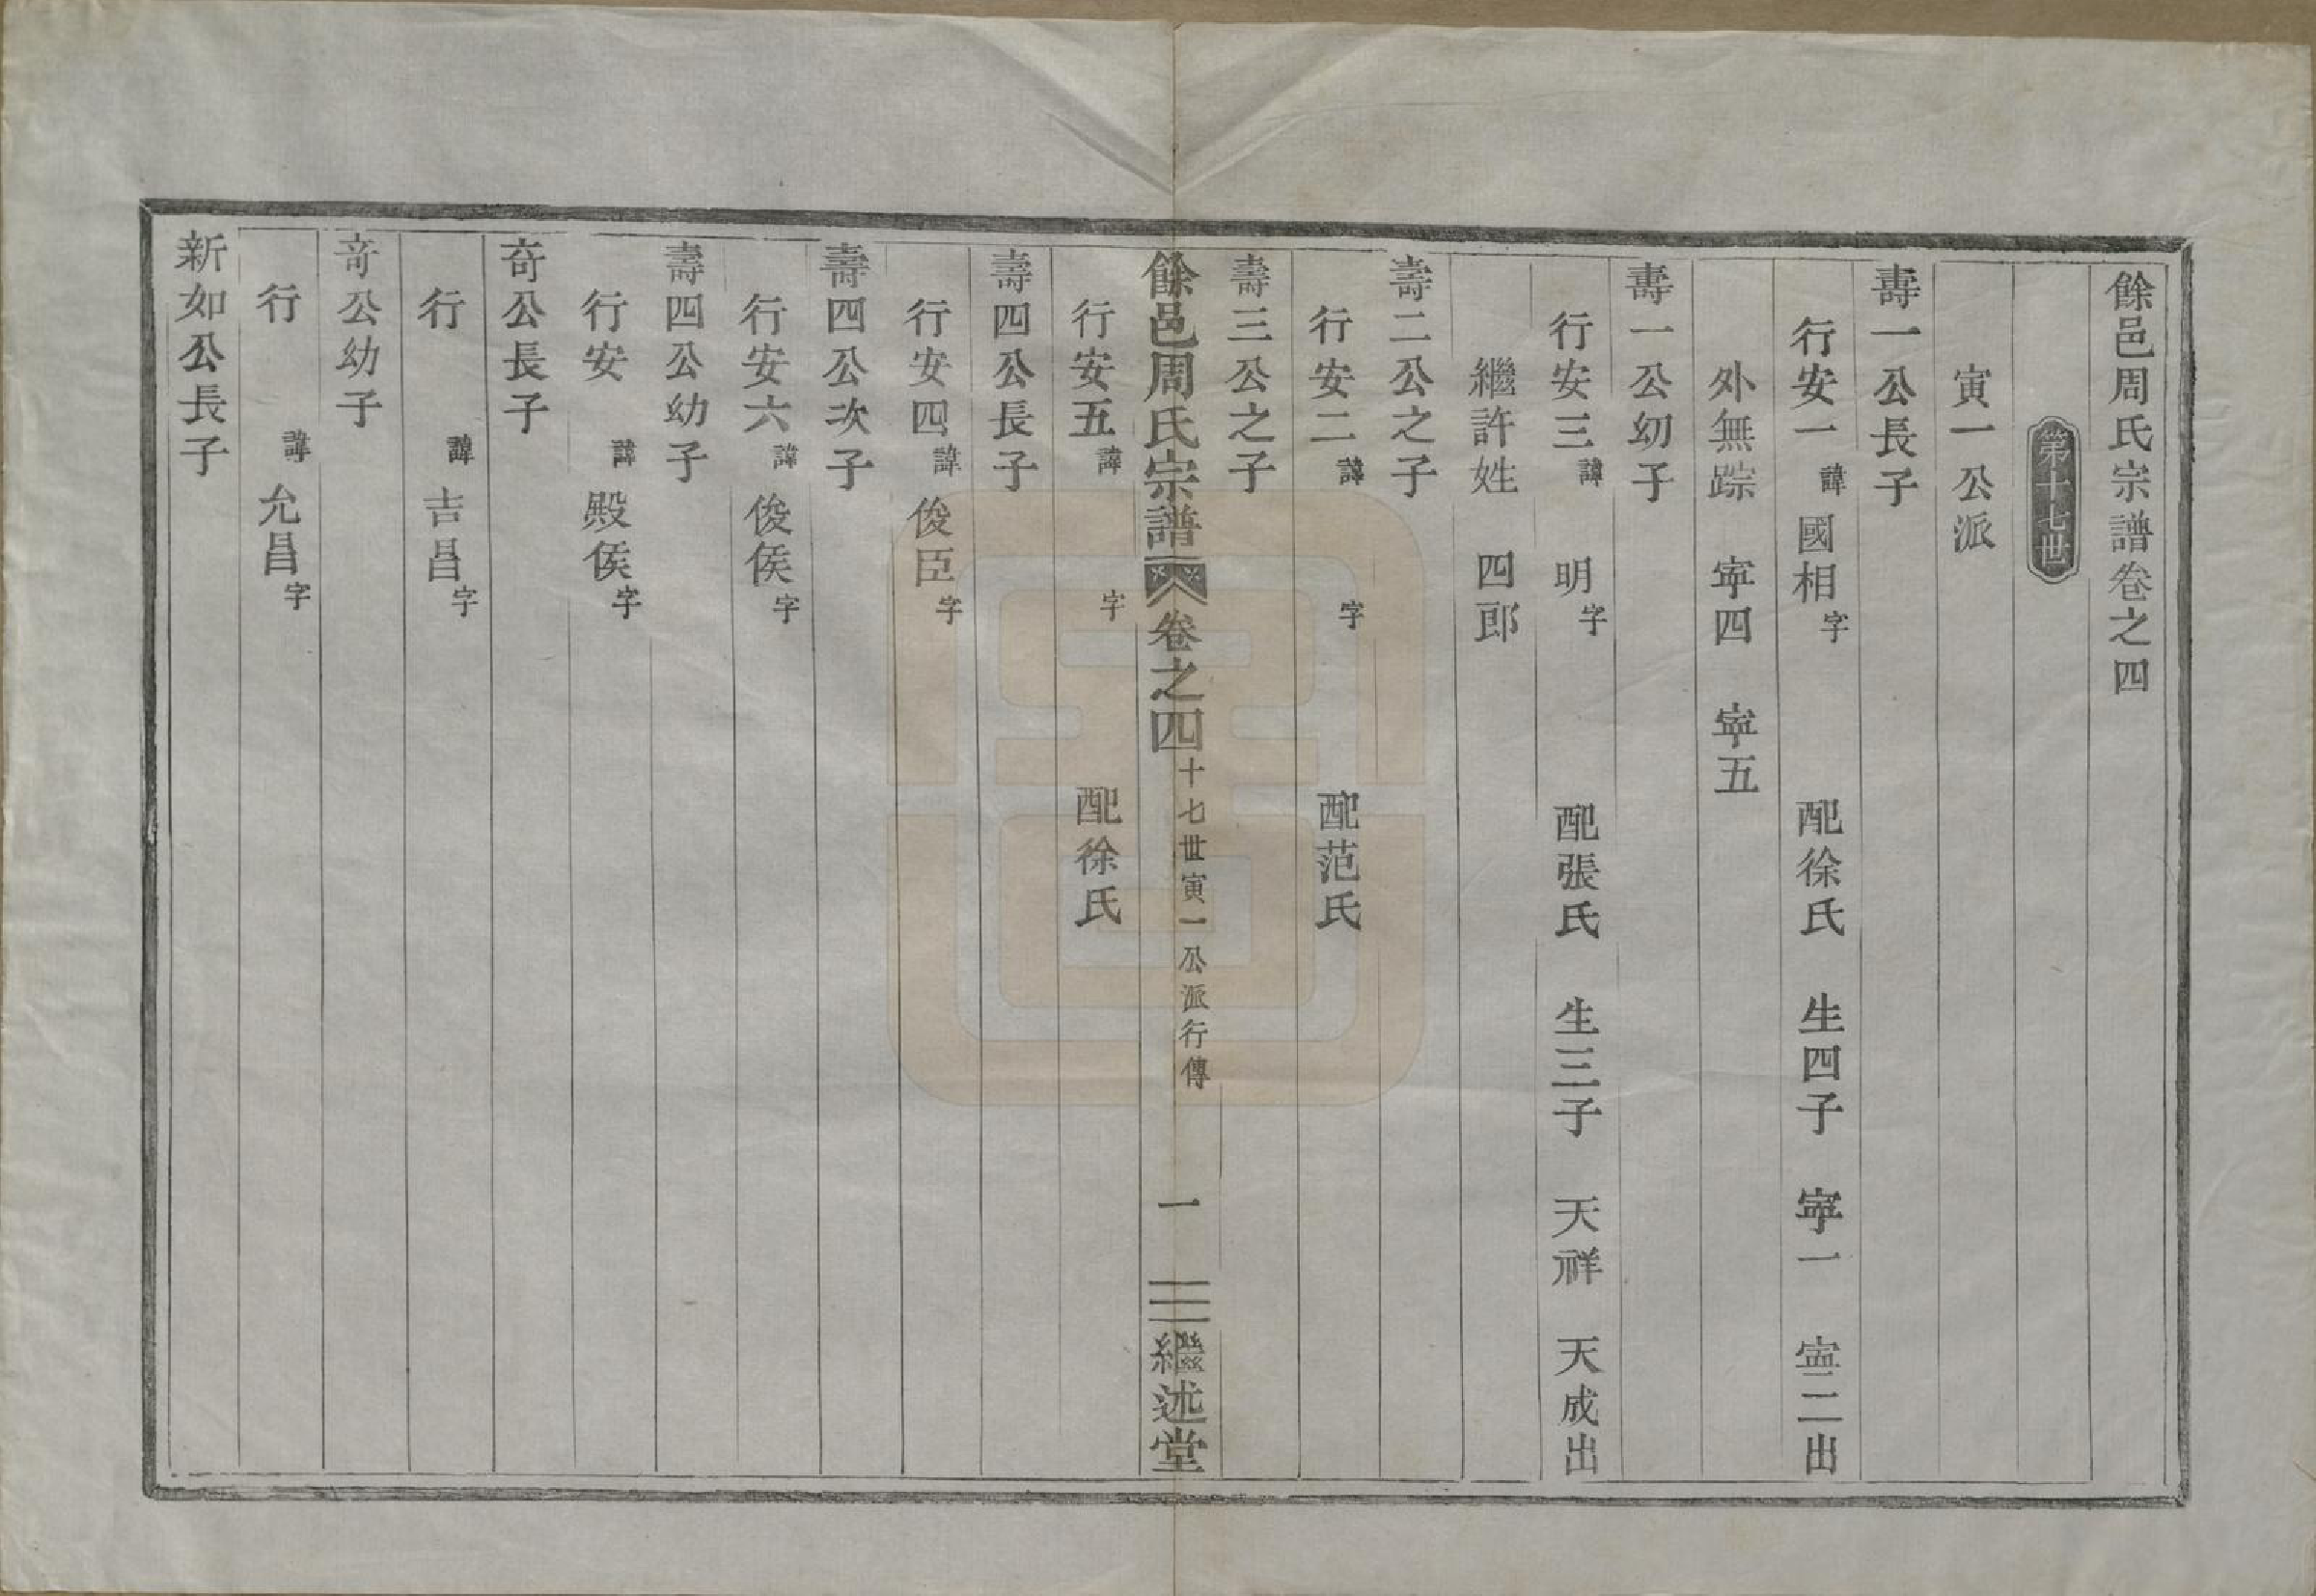 餘邑周氏宗譜卷之四
第十七世
寅一公派
壽一公長子
行安一 諱 國相 字 配徐氏 生四子 寧一 寧二出
外無踪 寧四 寧五
壽一公幼子
行安三 諱 明 字 配張氏 生三子 天祥 天成出
繼許姓 四郎
壽二公之子
行安二 諱 字 配范氏
壽三公之子
餘邑周氏宗譜 卷之四 十七世寅一公派行傳 一 繼述堂
行安五 諱 字 配徐氏
壽四公長子
行安四 諱 俊臣 字
壽四公次子
行安六 諱 俊侯 字
壽四公幼子
行安 諱 殿侯 字
奇公長子
行 諱 吉昌 字
奇公幼子
行 諱 允昌 字
新如公長子